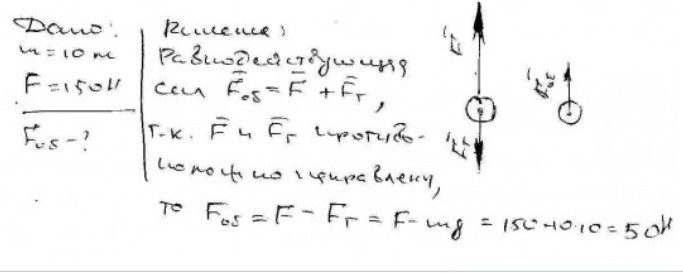 Дано:
m = 10 м
F = 150 Н
F̄об - ?
Решение:
Равнодействующая
сил F̄об = F̄ + F̄т,
т.к. F̄ и F̄т противо-
положно направлены,
то Fоб = F - Fт = F - mg = 150 - 10·10 = 50 Н
F̄
F̄т
F̄об